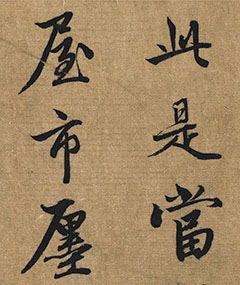 此是當
屋市廛